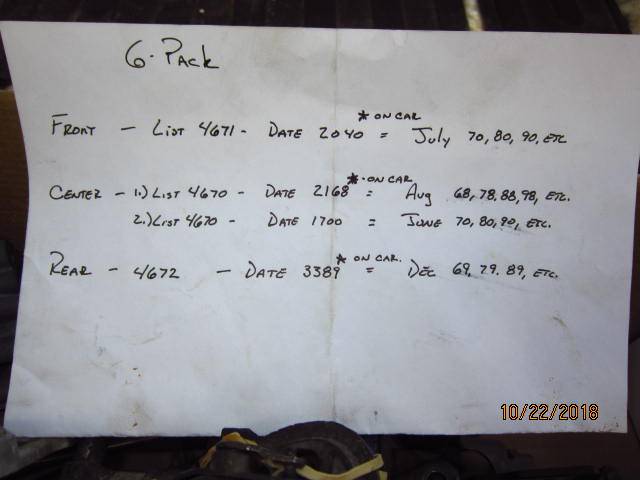 6-Pack
* ON CAR
FRONT - LIST 4671 - DATE 2040 = July 70, 80, 90, ETC
* ON CAR
CENTER - 1.) LIST 4670 - DATE 2168 = Aug 68, 78, 88, 98, ETC.
2.) LIST 4670 - DATE 1700 = JUNE 70, 80, 90, ETC.
* ON CAR.
REAR - 4672 - DATE 3389 = DEC 69, 79, 89, ETC.
10/22/2018